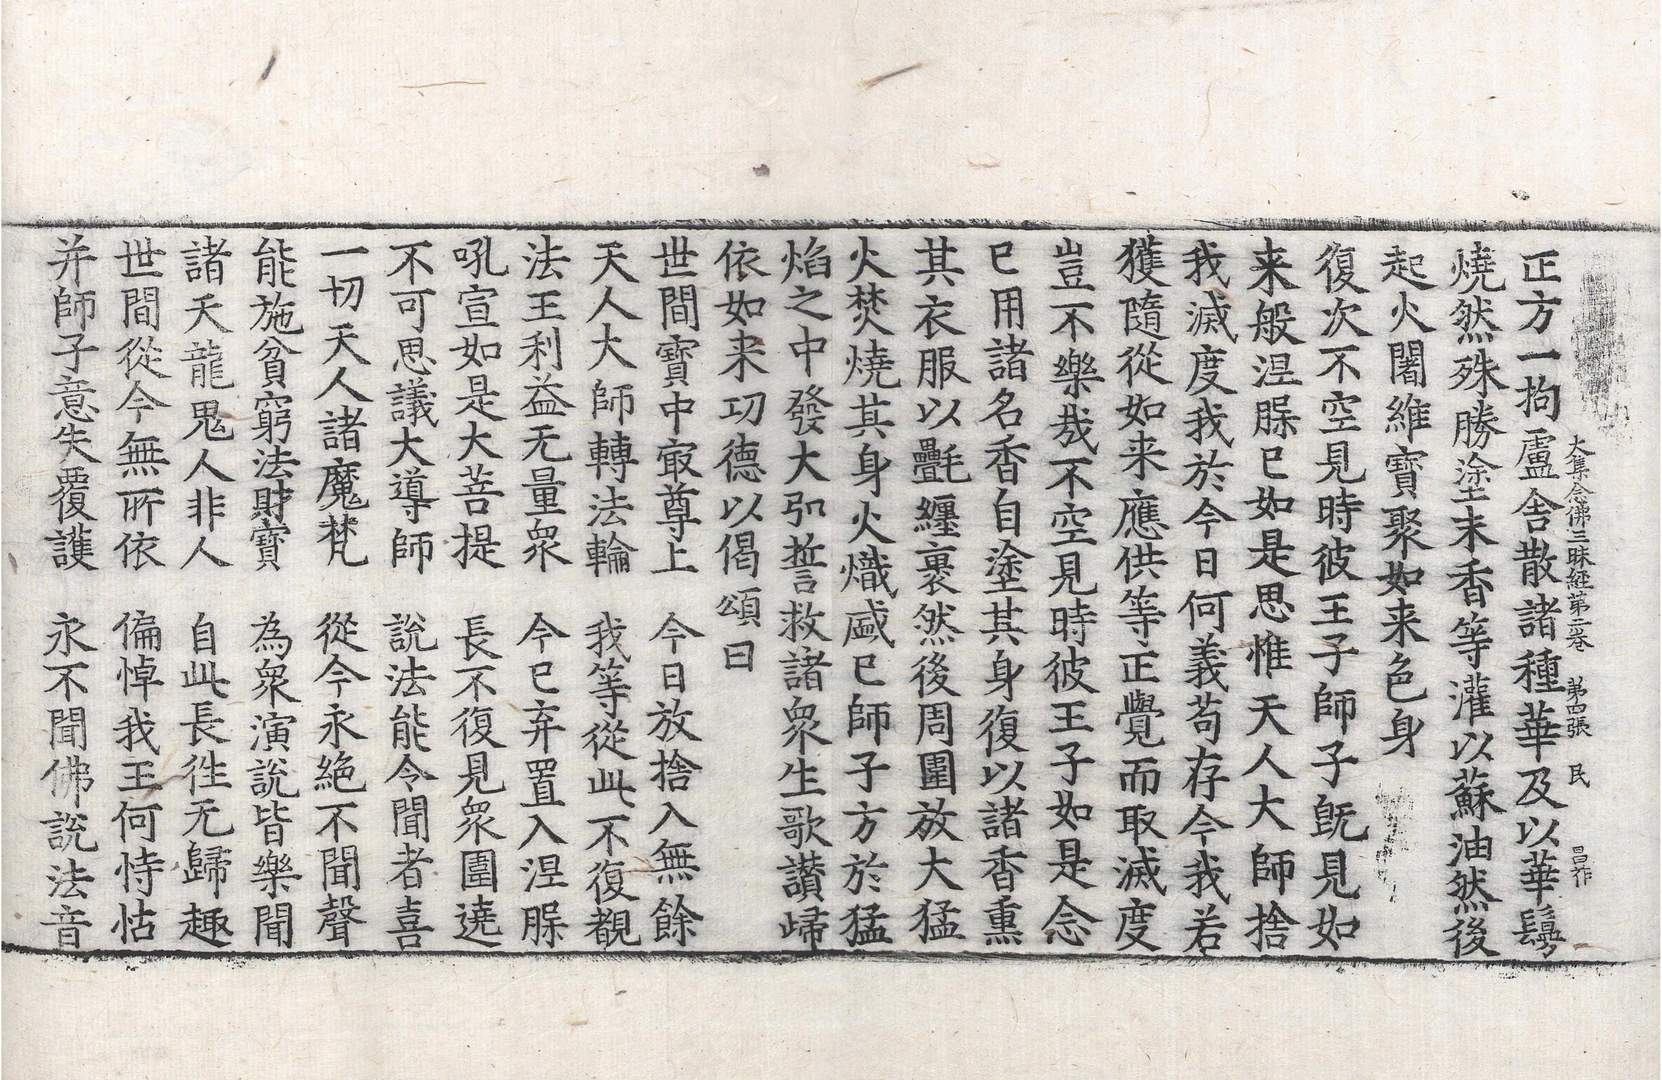 大集念佛三昧經第二卷 第四張 民 昌作
正方一拘盧舍散諸種華及以華鬘
燒然殊勝塗末香等灌以蘇油然後
起火闍維寶聚如来色身
復次不空見時彼王子師子既見如
来般涅脲已如是思惟天人大師捨
我滅度我於今日何義苟存今我若
獲隨從如来應供等正覺而取滅度
豈不樂哉不空見時彼王子如是念
已用諸名香自塗其身復以諸香熏
其衣服以㲲纏裹然後周圍放大猛
火焚燒其身火熾盛已師子方於猛
焰之中發大弘誓救諸衆生歌讃歸
依如来功德以偈頌曰
世間寶中㝡尊上 今日放捨入無餘
天人大師轉法輪 我等從此不復覩
法王利益无量衆 今已弃置入涅脲
吼宣如是大菩提 長不復見衆圍遶
不可思議大導師 說法能令聞者喜
一切天人諸魔梵 從今永絕不聞聲
能施貧窮法財寶 為衆演說皆樂聞
諸天龍鬼人非人 自此長徃无歸趣
世間從今無所依 偏悼我王何恃怙
并師子意失覆護 永不聞佛說法音